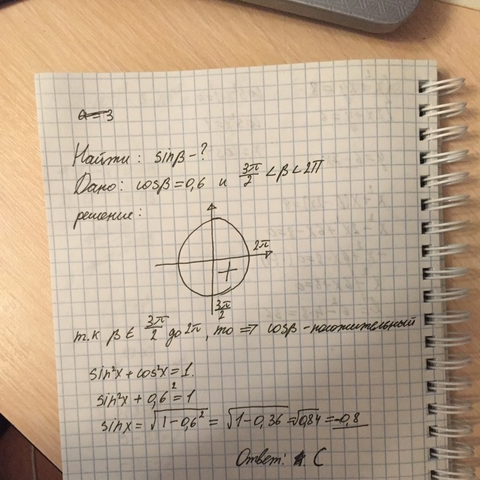 a = 3
Найти: sinβ - ?
Дано: cosβ = 0,6 и 3π/2 < β < 2П
решение:
2π
+
3π/2
т.к β ∈ 3π/2 до 2π, то => cosβ - положительный
sin²x + cos²x = 1.
sin²x + 0,6² = 1
sinx = √1-0,6² = √1-0,36 = √0,84 = -0,8
Ответ: C